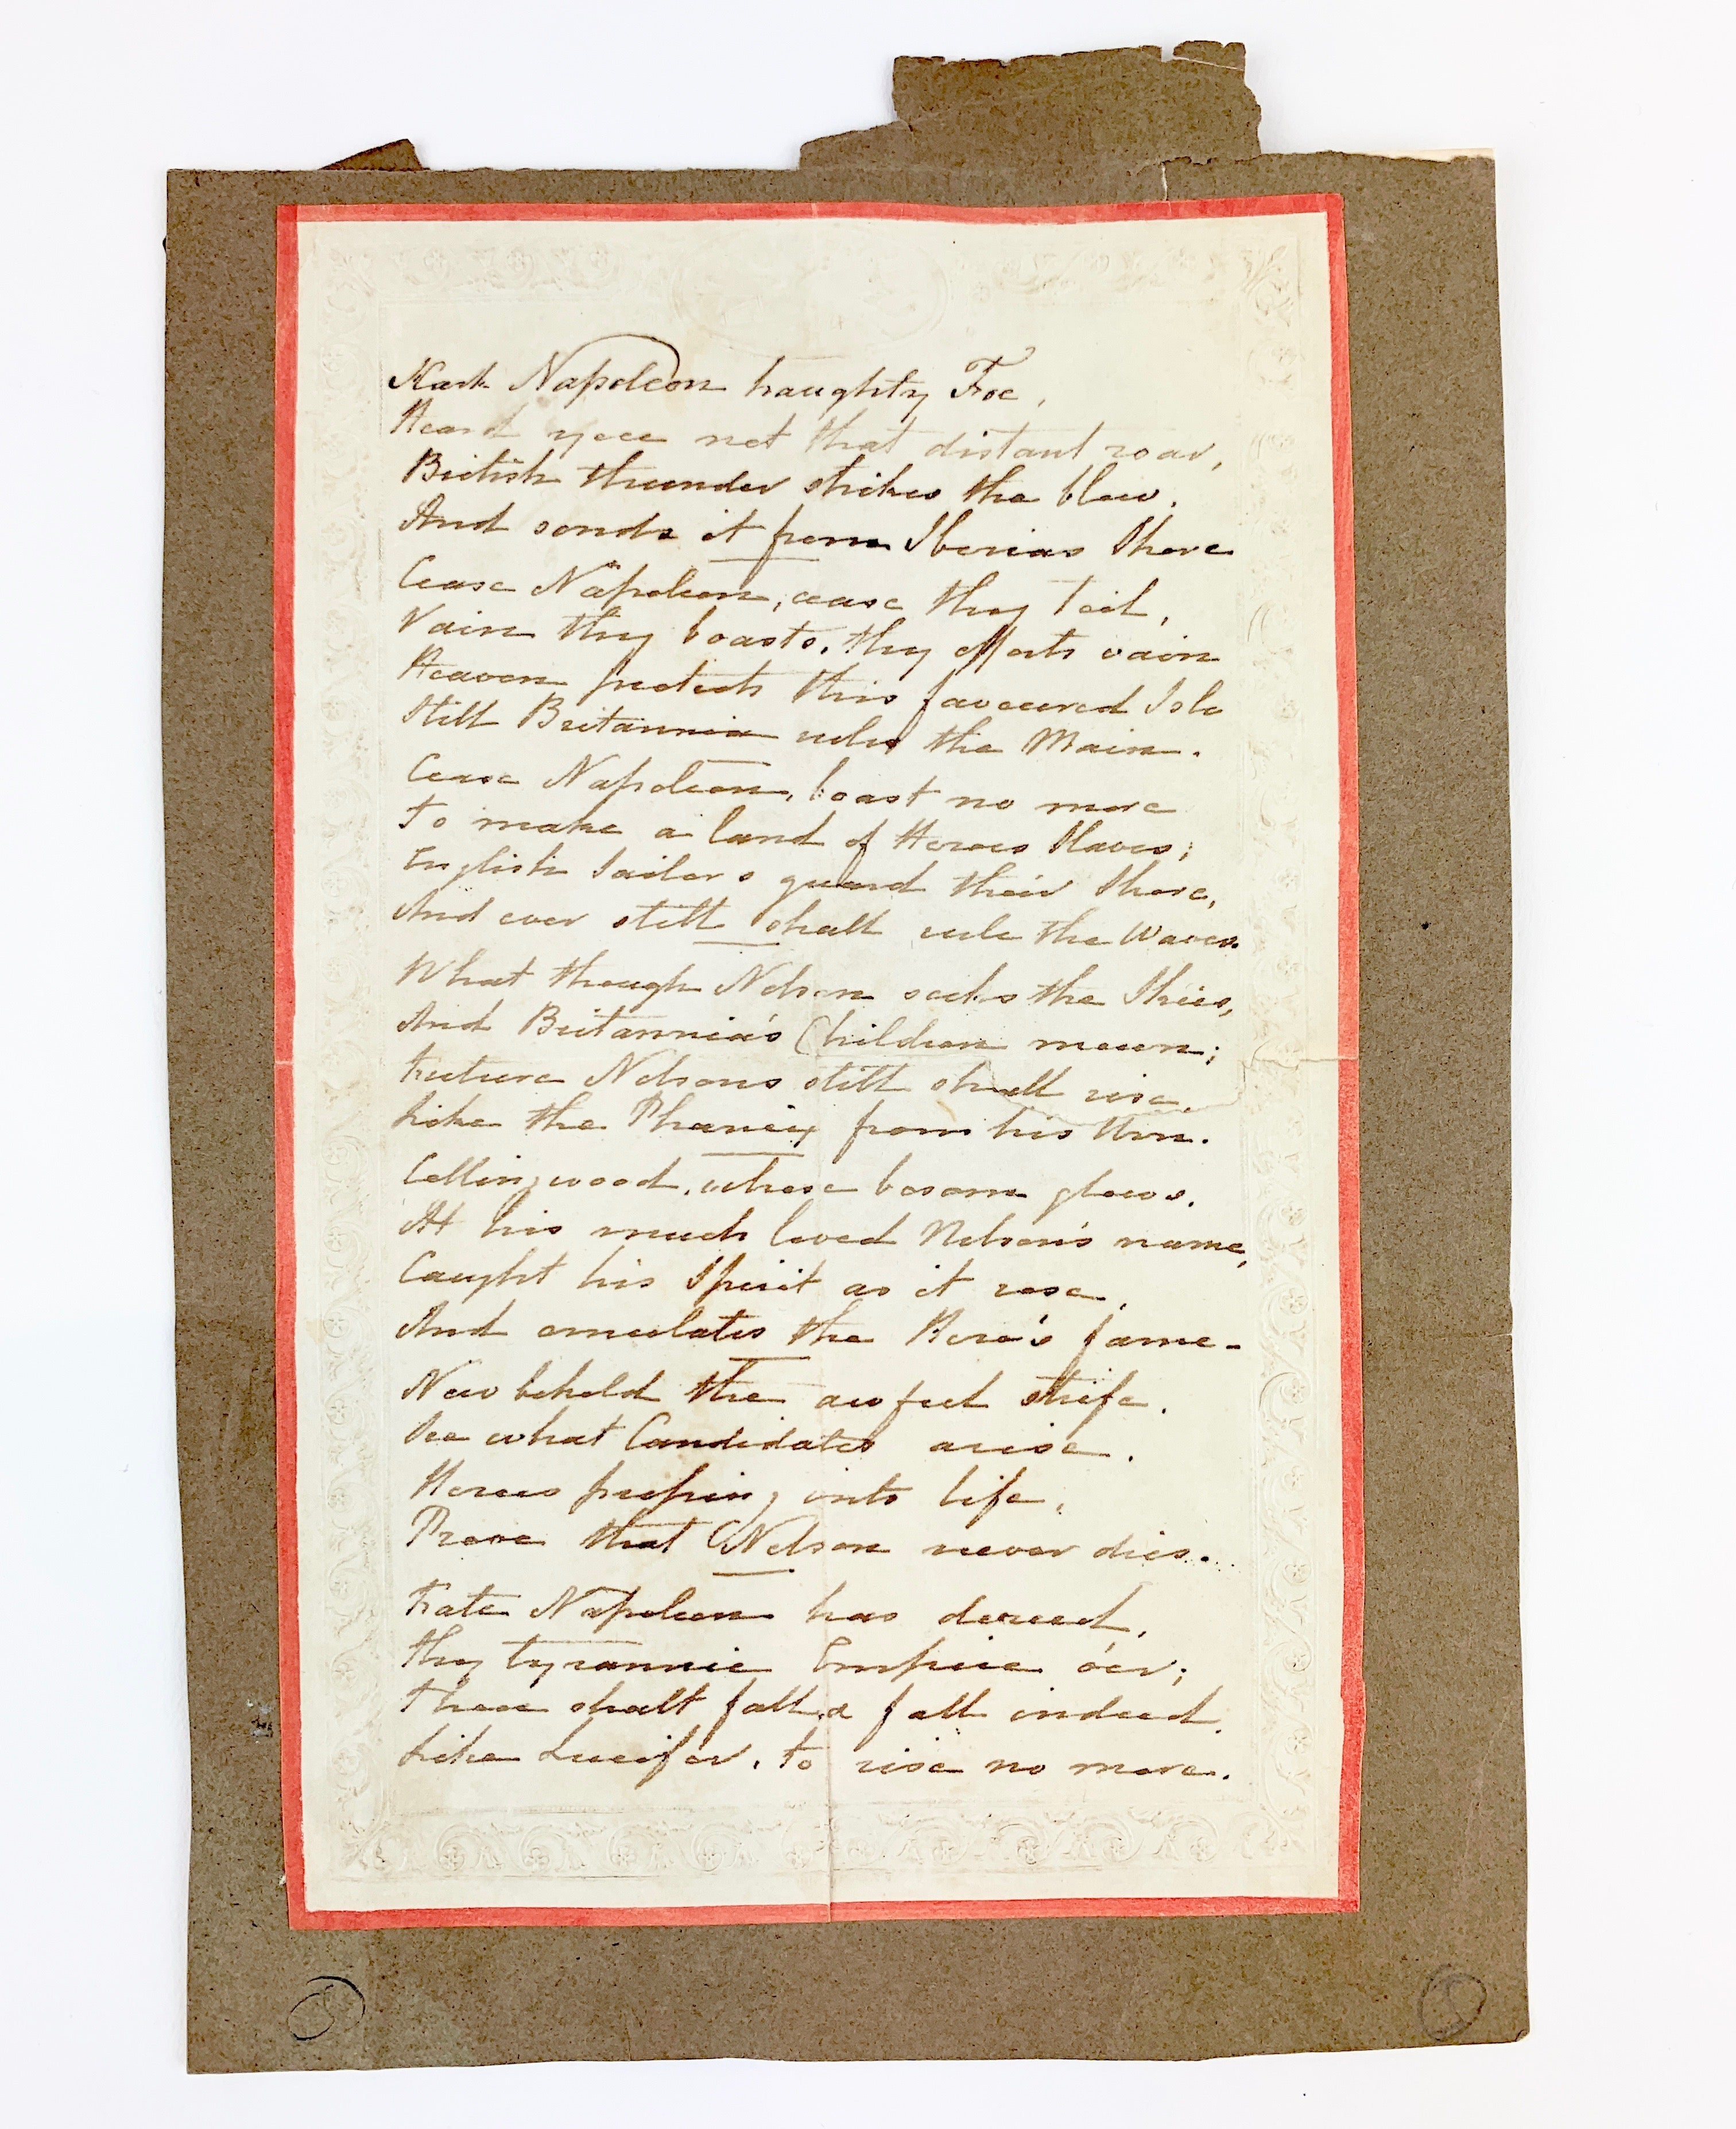 Hark Napoleon haughty Foe,
Heard you not that distant roar,
British thunder strikes the blow,
And sends it from Iberias Shore
Cease Napoleon, cease thy toil,
Vain thy boasts, thy efforts vain
Heaven protects this favoured Isle
Still Britannia rules the Main.
Cease Napoleon, boast no more
To make a land of Heroes Slaves;
English Sailors guard their Shore,
And ever still shall rule the Waves.
What though Nelson seeks the Skies,
And Britannia's Children mourn;
Future Nelsons still shall rise,
Like the Phaenix from his Urn.
Collingwood, whose bosom glows,
At his much loved Nelson's name,
Caught his Spirit as it rose,
And emulates the Hero's fame.
Now behold the awful strife,
See what Candidates arise,
Heroes pressing into life,
Prove that Nelson never dies.
Fate Napoleon has decreed,
Thy tyrannic Empire o'er;
Thou shalt fall, & fall indeed,
Like Lucifer, to rise no more.